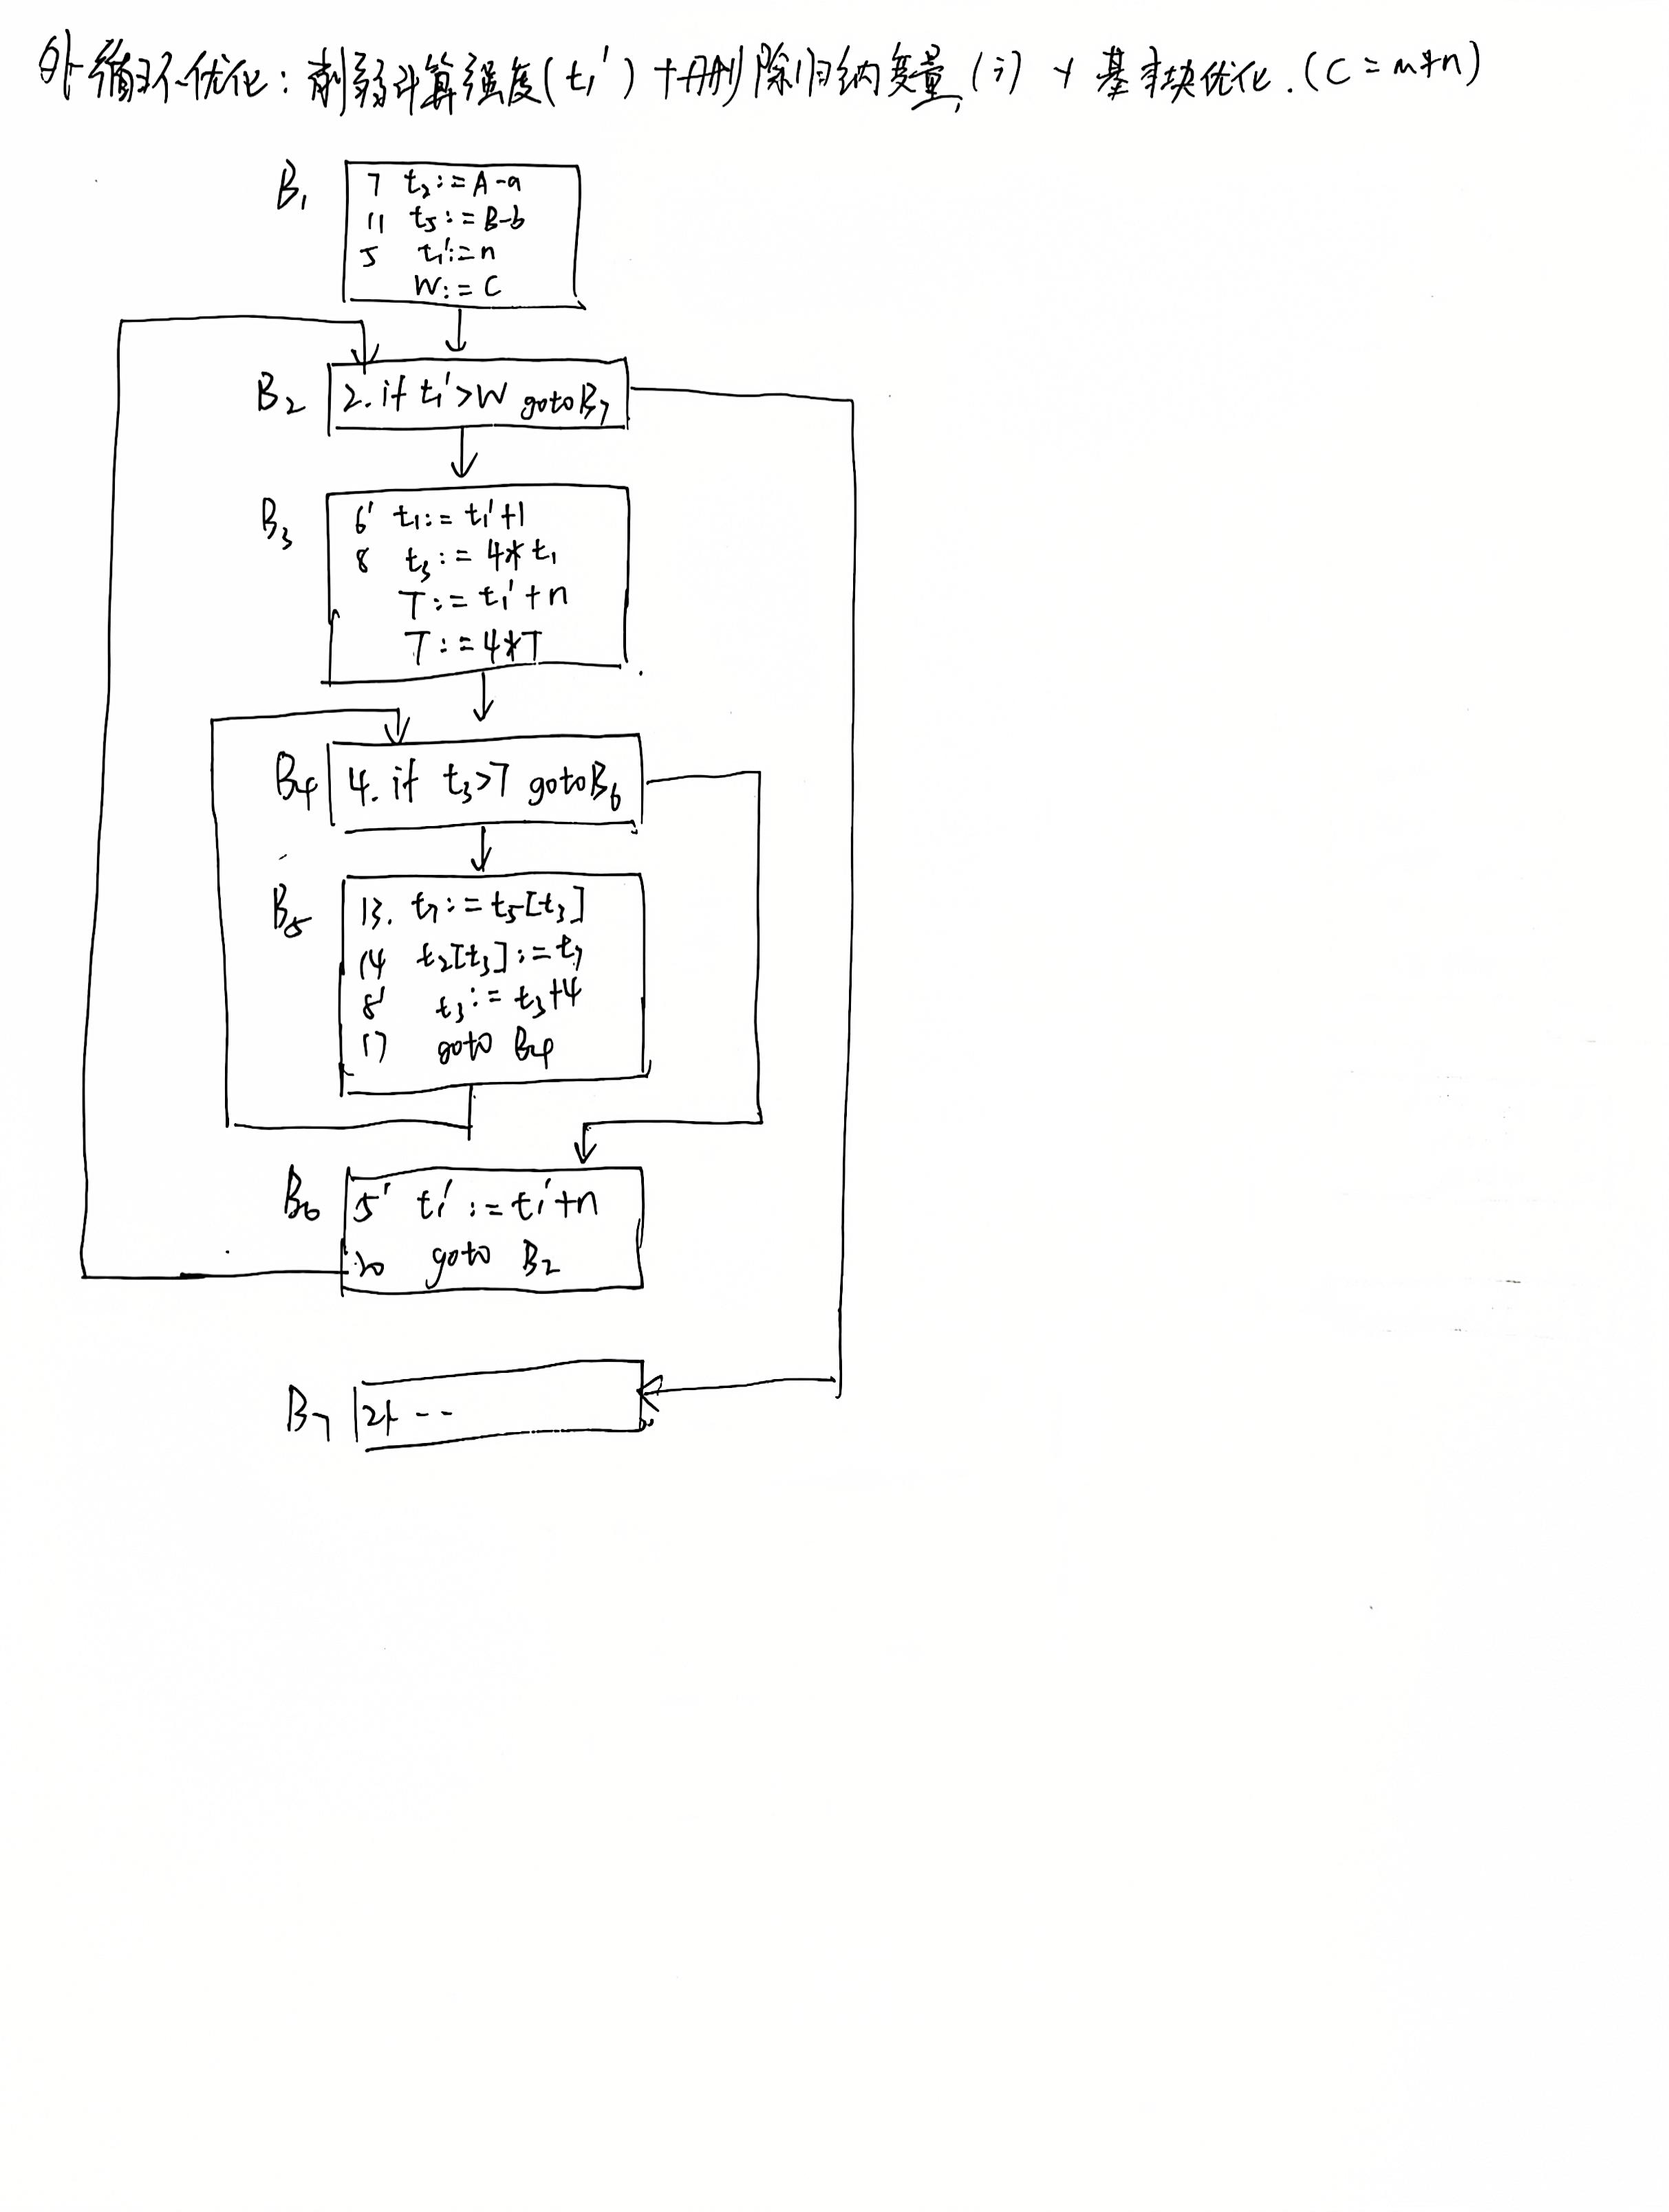 外循环优化：削弱计算强度(t₁') + 删除归纳变量(i) + 基本块优化.(C = m*n)
B₁
7 t₂:= A-a
11 t₅:= B-b
5 t₁':= n
W:= C
B₂
2. if t₁'>W goto B₇
B₃
6' t₁:= t₁'+1
8 t₃:= 4*t₁
T:= t₁'+n
T:= 4*T
B₄
4. if t₃>T goto B₆
B₅
13. t₇:= t₅[t₃]
14 t₂[t₃]:= t₇
8' t₃:= t₃+4
17 goto B₄
B₆
5' t₁':= t₁'+n
20 goto B₂
B₇
21 --